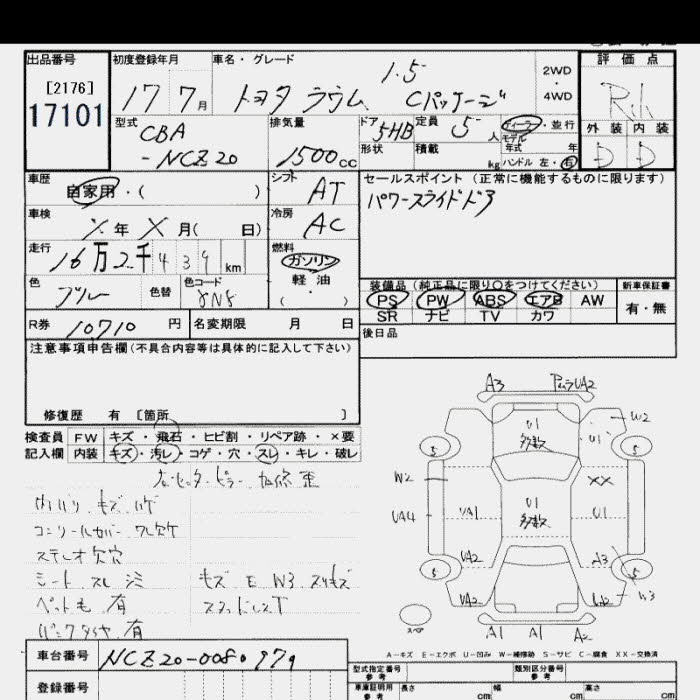 出品番号
[2176]
17101
初度登録年月
17 7月
車名・グレード
トヨタ ラウム 1.5 Cパッケージ
2WD
4WD
評価点
外装 内装
D D
型式
CBA
-NCZ20
排気量
1500cc
ドア 5HB
形状
定員 5人
積載 kg
ディーラー・並行
モデル
年式 年
ハンドル 左・右
車歴
自家用・( )
シフト AT
セールスポイント (正常に機能するものに限ります)
パワースライドドア
車検
X年X月( 日)
冷房 AC
走行
16万2千439km
燃料
ガソリン
軽油
( ・ )
色
ブルー
色替
色コード
8N8
装備品 (純正品に限り○をつけてください)
PS PW ABS エアB AW
SR ナビ TV カワ
新車保証書
有・無
R券 10710円
名変期限 月 日
後日品
注意事項申告欄(不具合内容等は具体的に記入して下さい)
修復歴 有 [箇所 ]
検査員 FW キズ・飛石・ヒビ割・リペア跡・×要
記入欄 内装 キズ・汚レ・コゲ・穴・スレ・キレ・破レ
ステレオ欠穴
シート スレ シミ
キズ E W3
ペット毛 有
パンクタイヤ 有
A3 UA2
U1
多数
W2
U1
S S
W2
XX
UA4
UA1
U1
多数
U1
UA2
A3
S S
UA2
W3
スペア
A1 A1 A2
A-キズ E-エクボ U-凹み W-補修跡 S-サビ C-腐食 XX-交換済
車台番号 NCZ20-0080979
登録番号
型式指定番号
参考
類別区分番号
参考
車庫証明用
参考
長さ cm 幅 cm 高さ cm